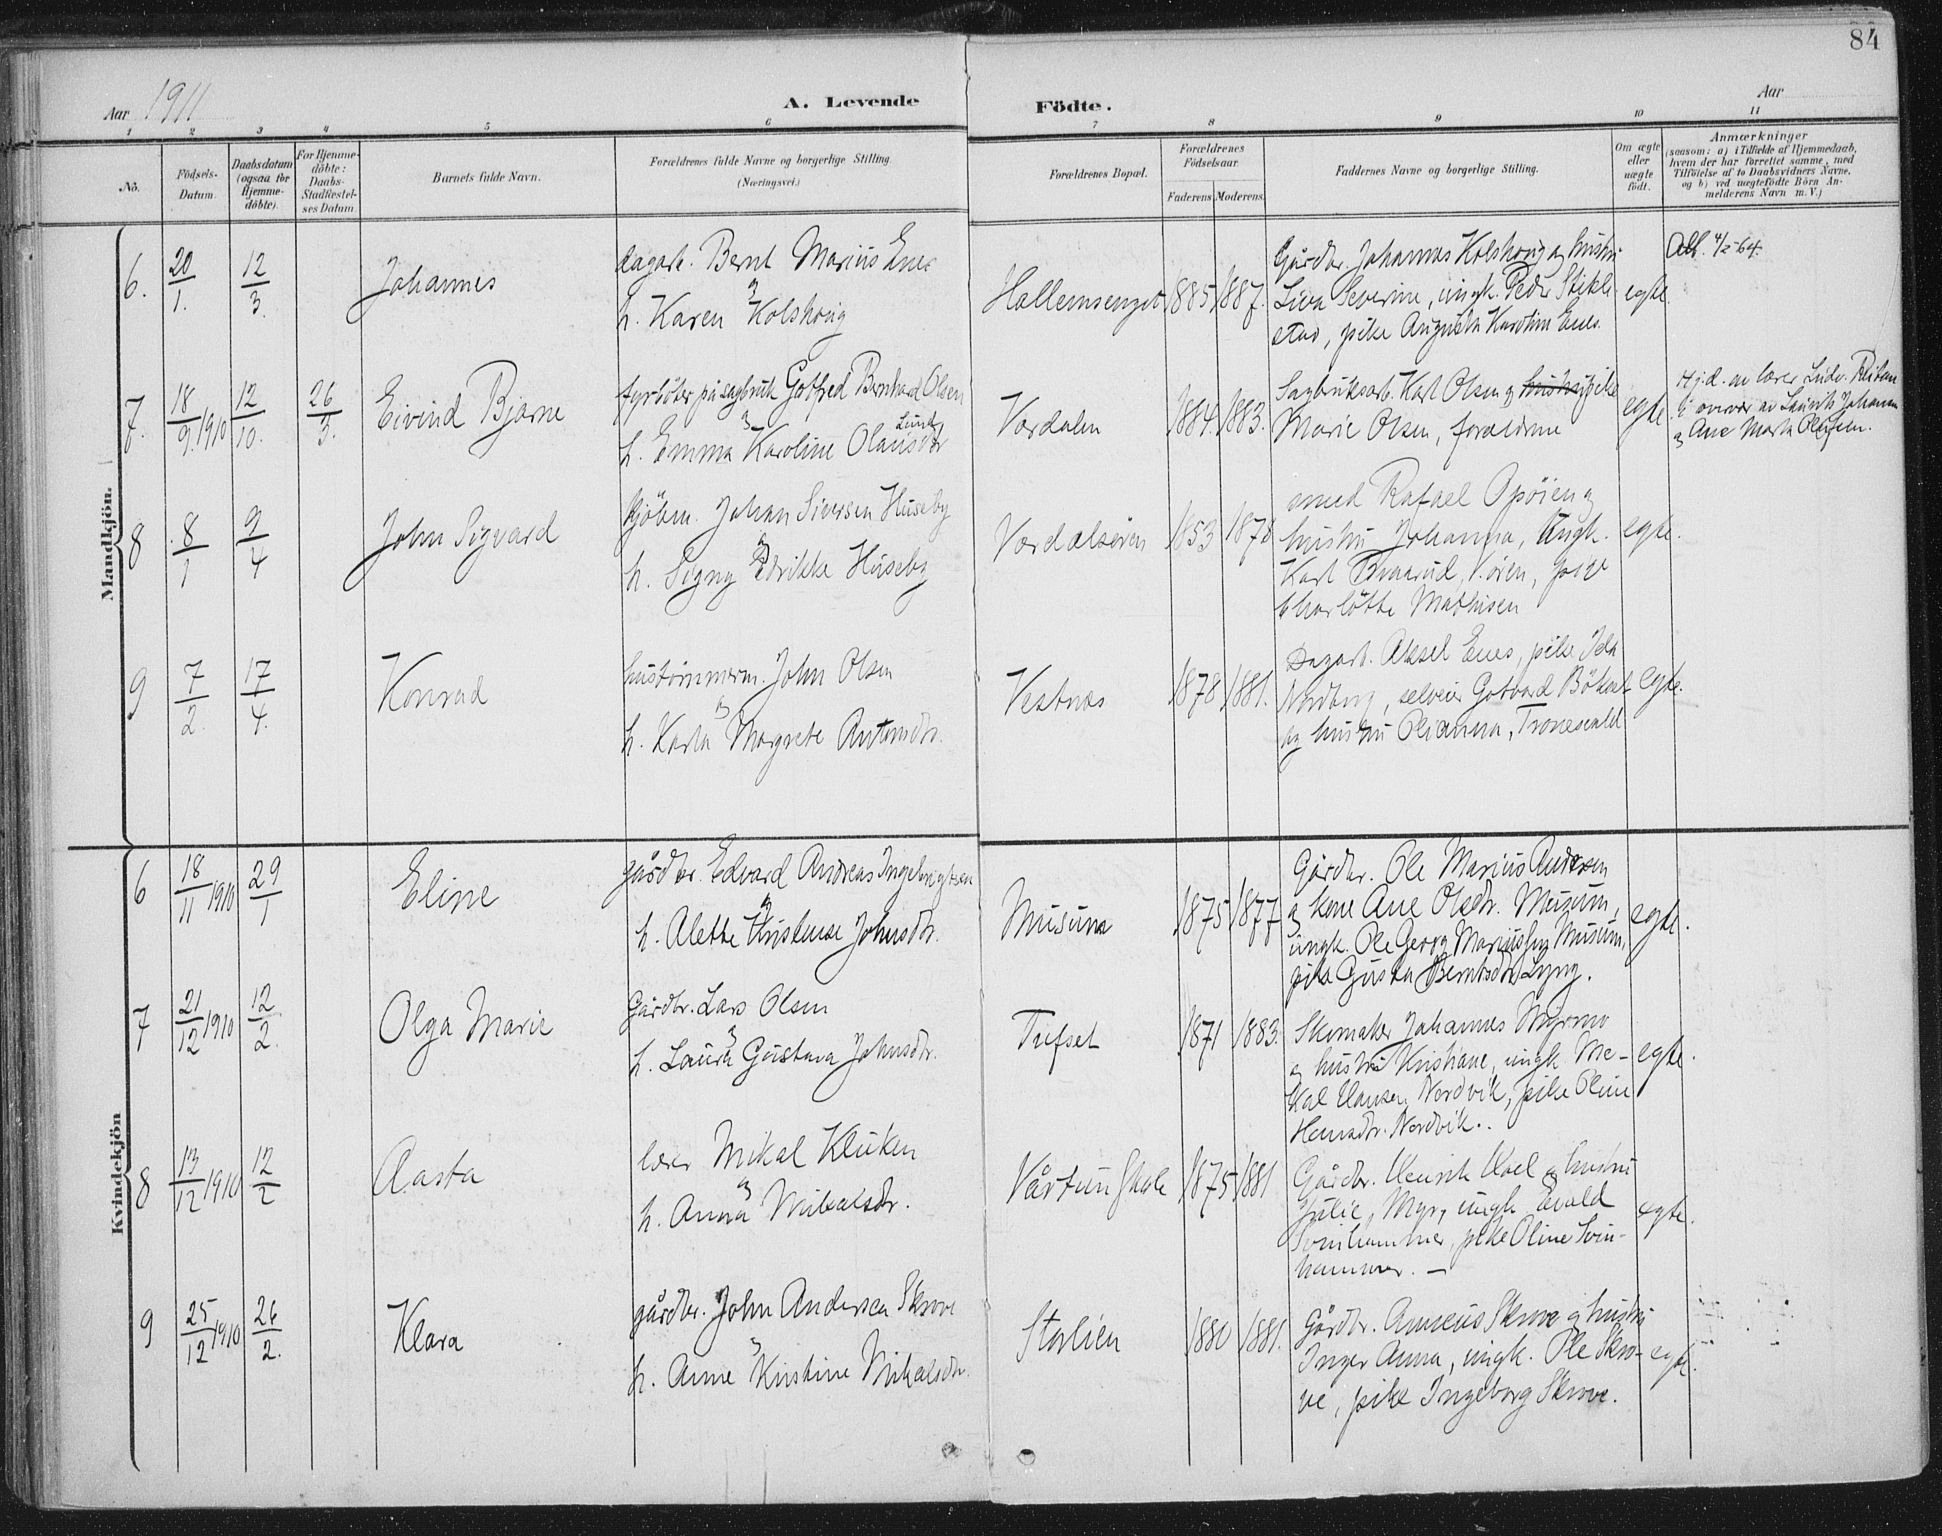 84
Aar 1911
A. Levende
Födte.
Aar
1 2 3 4 5 6 7 8 9 10 11
No.
Födsels-Datum.
Daabsdatum (ogsaa for Hjemme-döbte).
For Hjemme-döbte: Daabs-Stadfæstel-ses Datum
Barnets fulde Navn.
Forældrenes fulde Navne og borgerlige Stilling. (Næringsvei.)
Forældrenes Bopæl.
Forældrenes Födselsaar.
Faderens Moderens.
Faddernes Navne og borgerlige Stilling.
Om ægte eller uægte födt.
Anmærkninger
(saasom: a) i Tilfælde af Hjemmedaab,
hvem der har forrettet samme, med
Tilföielse af to Daabsvidners Navne,
og b) ved uægtefödte Börn An-
melderens Navn m. V.)
Mandkjön.
6. 20/1. 12/3. Johannes
dagarb. Bernt Marius Enes
og
h. Karen Kolshoug
Hallemsenget 1885 1887.
Gårdbr. Johannes Kolshoug og hustru
Severine, ungk. Peder Stikle-
stad, pike Augusta Enes.
egte.
4/2-64.
7. 18/9. 1910 12/10. 26/3. Eivind Bjarne
fyrböter på sagbruk Gotfred Bernhard Olsen
og
Lund
h. Emma Karoline Olausdtr
Værdalen 1884. 1883.
Sagbruksarb. Karl Olsen og hustru pike
Marie Olsen, forældrene
egte
Hj.d. av lærer Ludv. Reitan
i overvær av Laurits Johansen
og Ane Marta
8 8/1 9/4 John Sigvard
Kjöbm. Johan Sivertsen Huseby
og
h. Signy Huseby
Værdalsören 1853 1878
smed Rafael Opöien og
hustru Johanna, Ungk.
Karl V.ören, pige
Charlotte Mathisen
egte.
9 7/2. 17/4. Konrad
hustömmerm. John Olsen
og
h. Karla Margrete Antonsdtr.
Vestnæs 1878 1881.
Dagarb. Aksel Enes, pike Ida
Nordberg, selveier Gotvard
og hustru Olianna, Tronesvald
egte.
Kvindekjön
6 18/11 1910 29/1 Eline
gårdbr. Edvard Andreas Ingebrigtsen
og
h. Alette Kristense Johnsdtr.
Musum 1875 1877
Gårdbr. Ole Marius Andersen
og kone Ane Olsdtr. Musum,
ungk. Ole Georg Musum,
pike Gusta Berntsdtr. Lyng.
egte.
7 21/12 1910 12/2. Olga Marie
Gårdbr. Lars Olsen
og
h. Laura Gustava Johnsdtr.
Tufset 1871 1883.
Skomaker Johannes Myrmo
og hustru Kristiane, ungk. Me-
kal Hansen Nordvik, pike Oline
Hansdtr. Nordvik.
egte.
8 13/12 1910 12/2 Aasta
lærer Mikal Kluken
og
h. Anna Mikalsdtr.
Vårtun Skole 1875 1881
Gårdbr. Henrik Hoel og hustru
Julie, Myr, ungk. Evald
Svinhammer, pike Oline Svin-
hammer. —
egte.
9 25/12 1910 26/2. Klara
gårdbr. John Andersen Skrove
og
h. Anne Kristine Mikalsdtr.
Storlien 1880 1881.
Gårdbr. Anneus Skrove og hustru
Inger Anna, ungk. Ole Skro-
ve, pike Ingeborg Skrove.
egte.